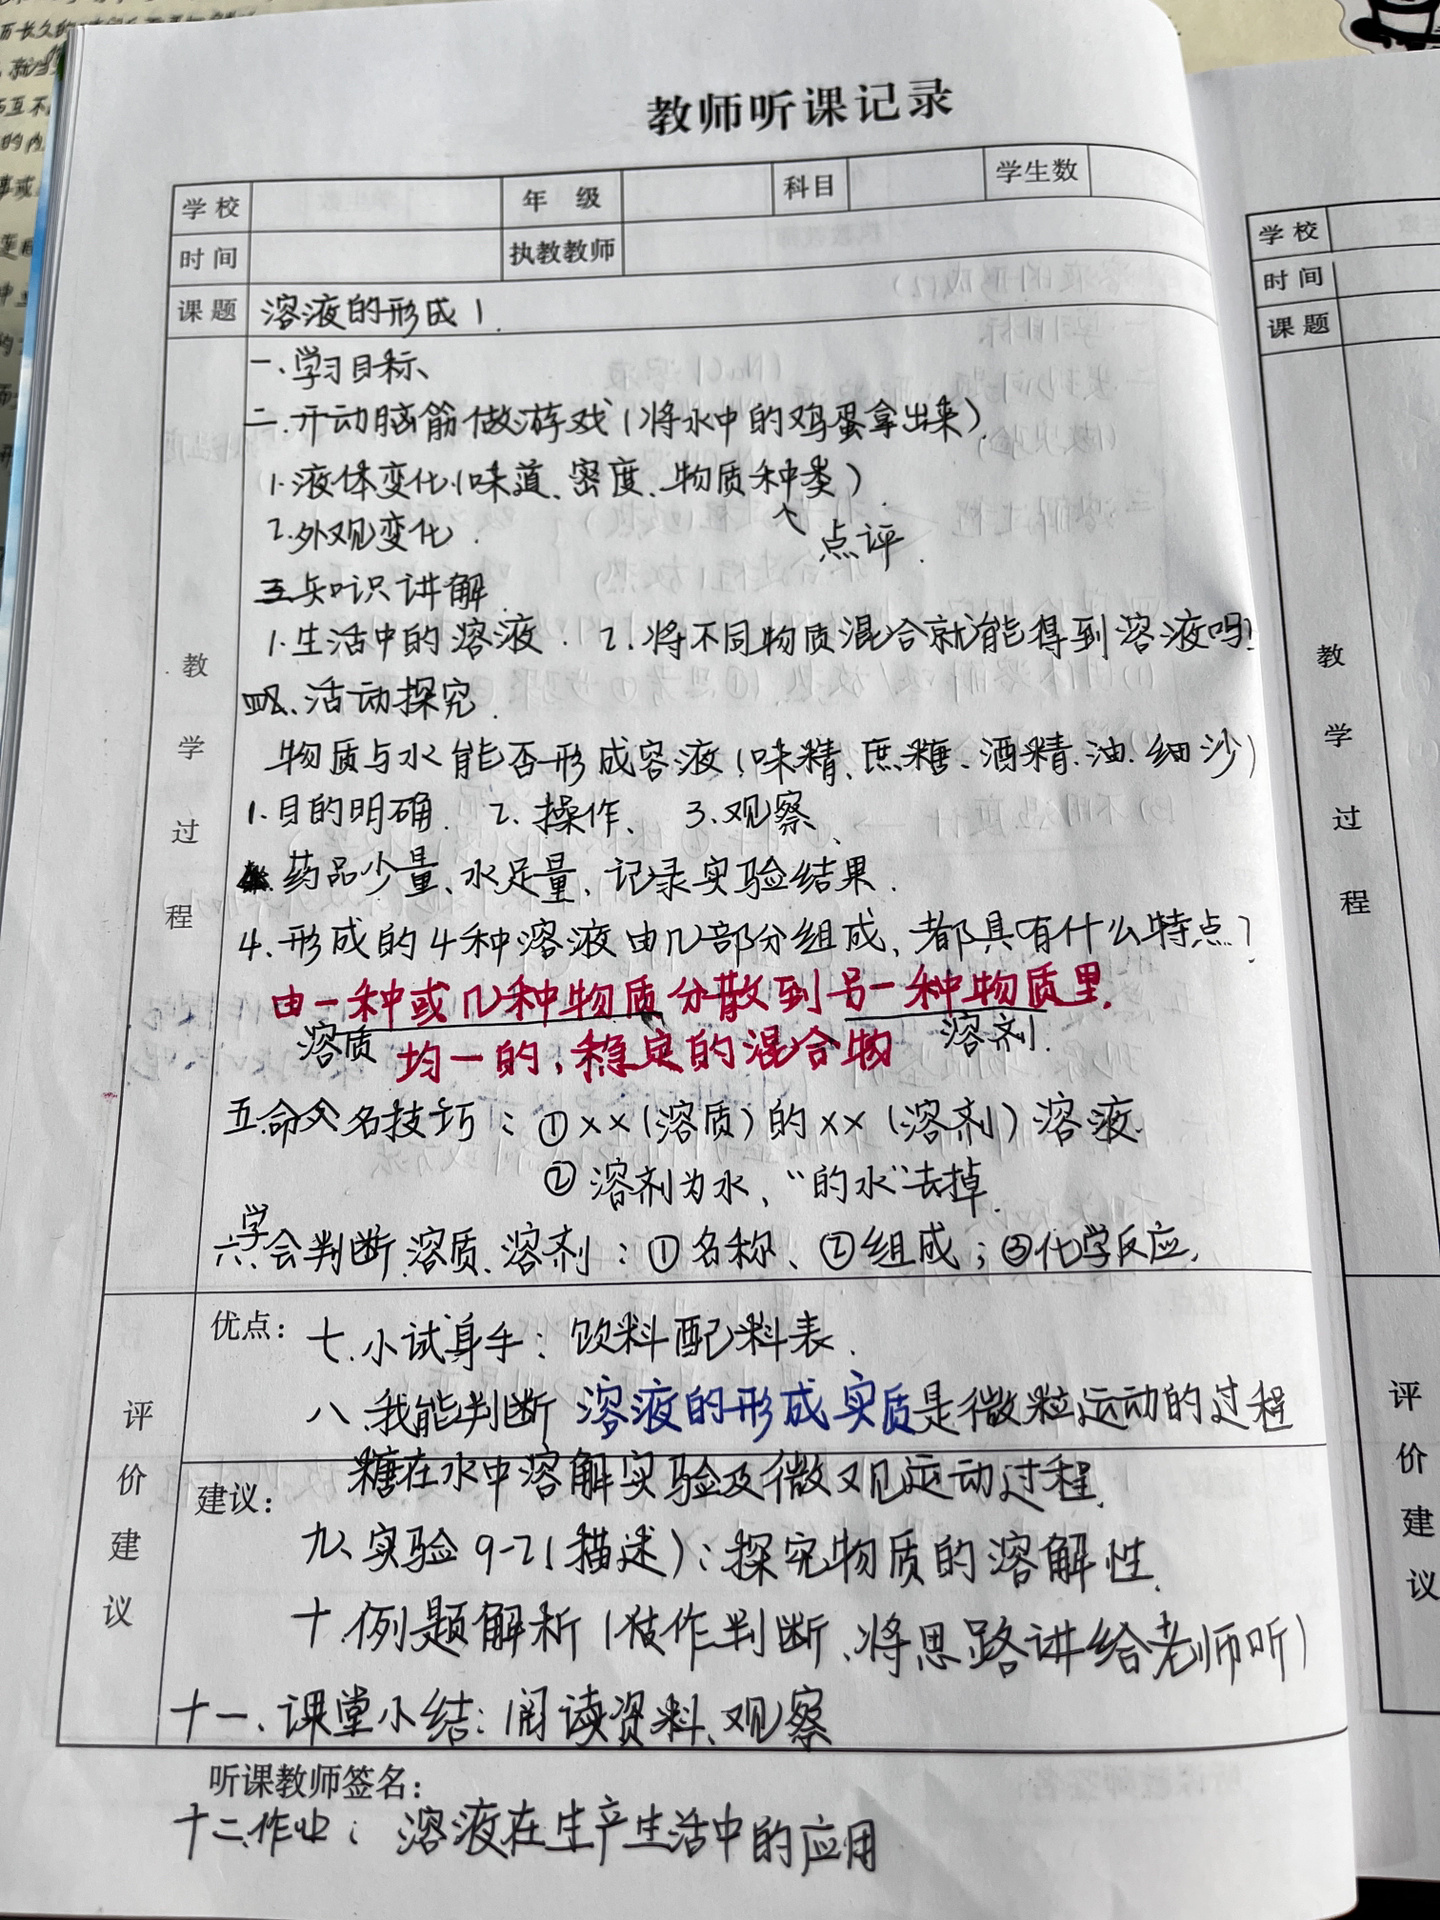 教师听课记录
学校 年 级 科目 学生数
时间 执教教师
课题 溶液的形成1.
一.学习目标、
二.开动脑筋做游戏(将水中的鸡蛋拿出来)
1.液体变化(味道、密度、物质种类)
2.外观变化. 点评.
三知识讲解.
1.生活中的溶液. 2.将不同物质混合就能得到溶液吗?
四、活动探究.
物质与水能否形成溶液(味精、蔗糖、酒精.油.细沙)
1.目的明确. 2.操作、 3.观察、
药品少量、水足量、记录实验结果.
4.形成的4种溶液由几部分组成、都具有什么特点?
由一种或几种物质分散到另一种物质里.
溶质 均一的、稳定的混合物 溶剂.
五.命名技巧:①××(溶质)的××(溶剂)溶液.
②溶剂为水、“的水”去掉.
六、学会判断.溶质、溶剂:①名称、②组成;③化学反应.
教学过程
优点: 七.小试身手:饮料配料表.
八.我能判断 溶液的形成实质是微粒运动的过程
糖在水中溶解实验及微观运动过程.
建议:
九、实验9-2(描述):探究物质的溶解性.
十.例题解析(做作判断.将思路讲给老师听)
十一、课堂小结:阅读资料、观察
评价建议
听课教师签名:
十二.作业:溶液在生产生活中的应用
学校
时间
课题
教学过程
评价建议